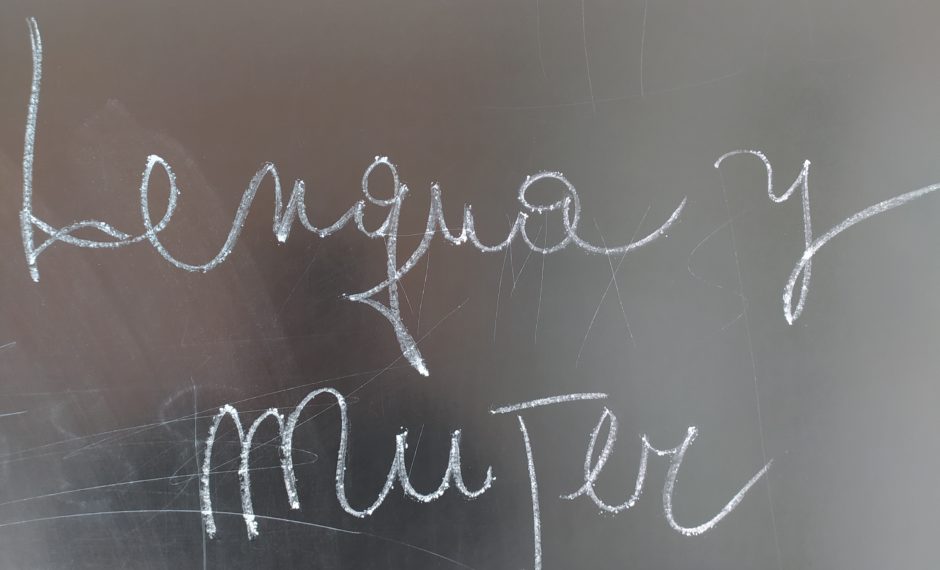 Lengua y
Mujer